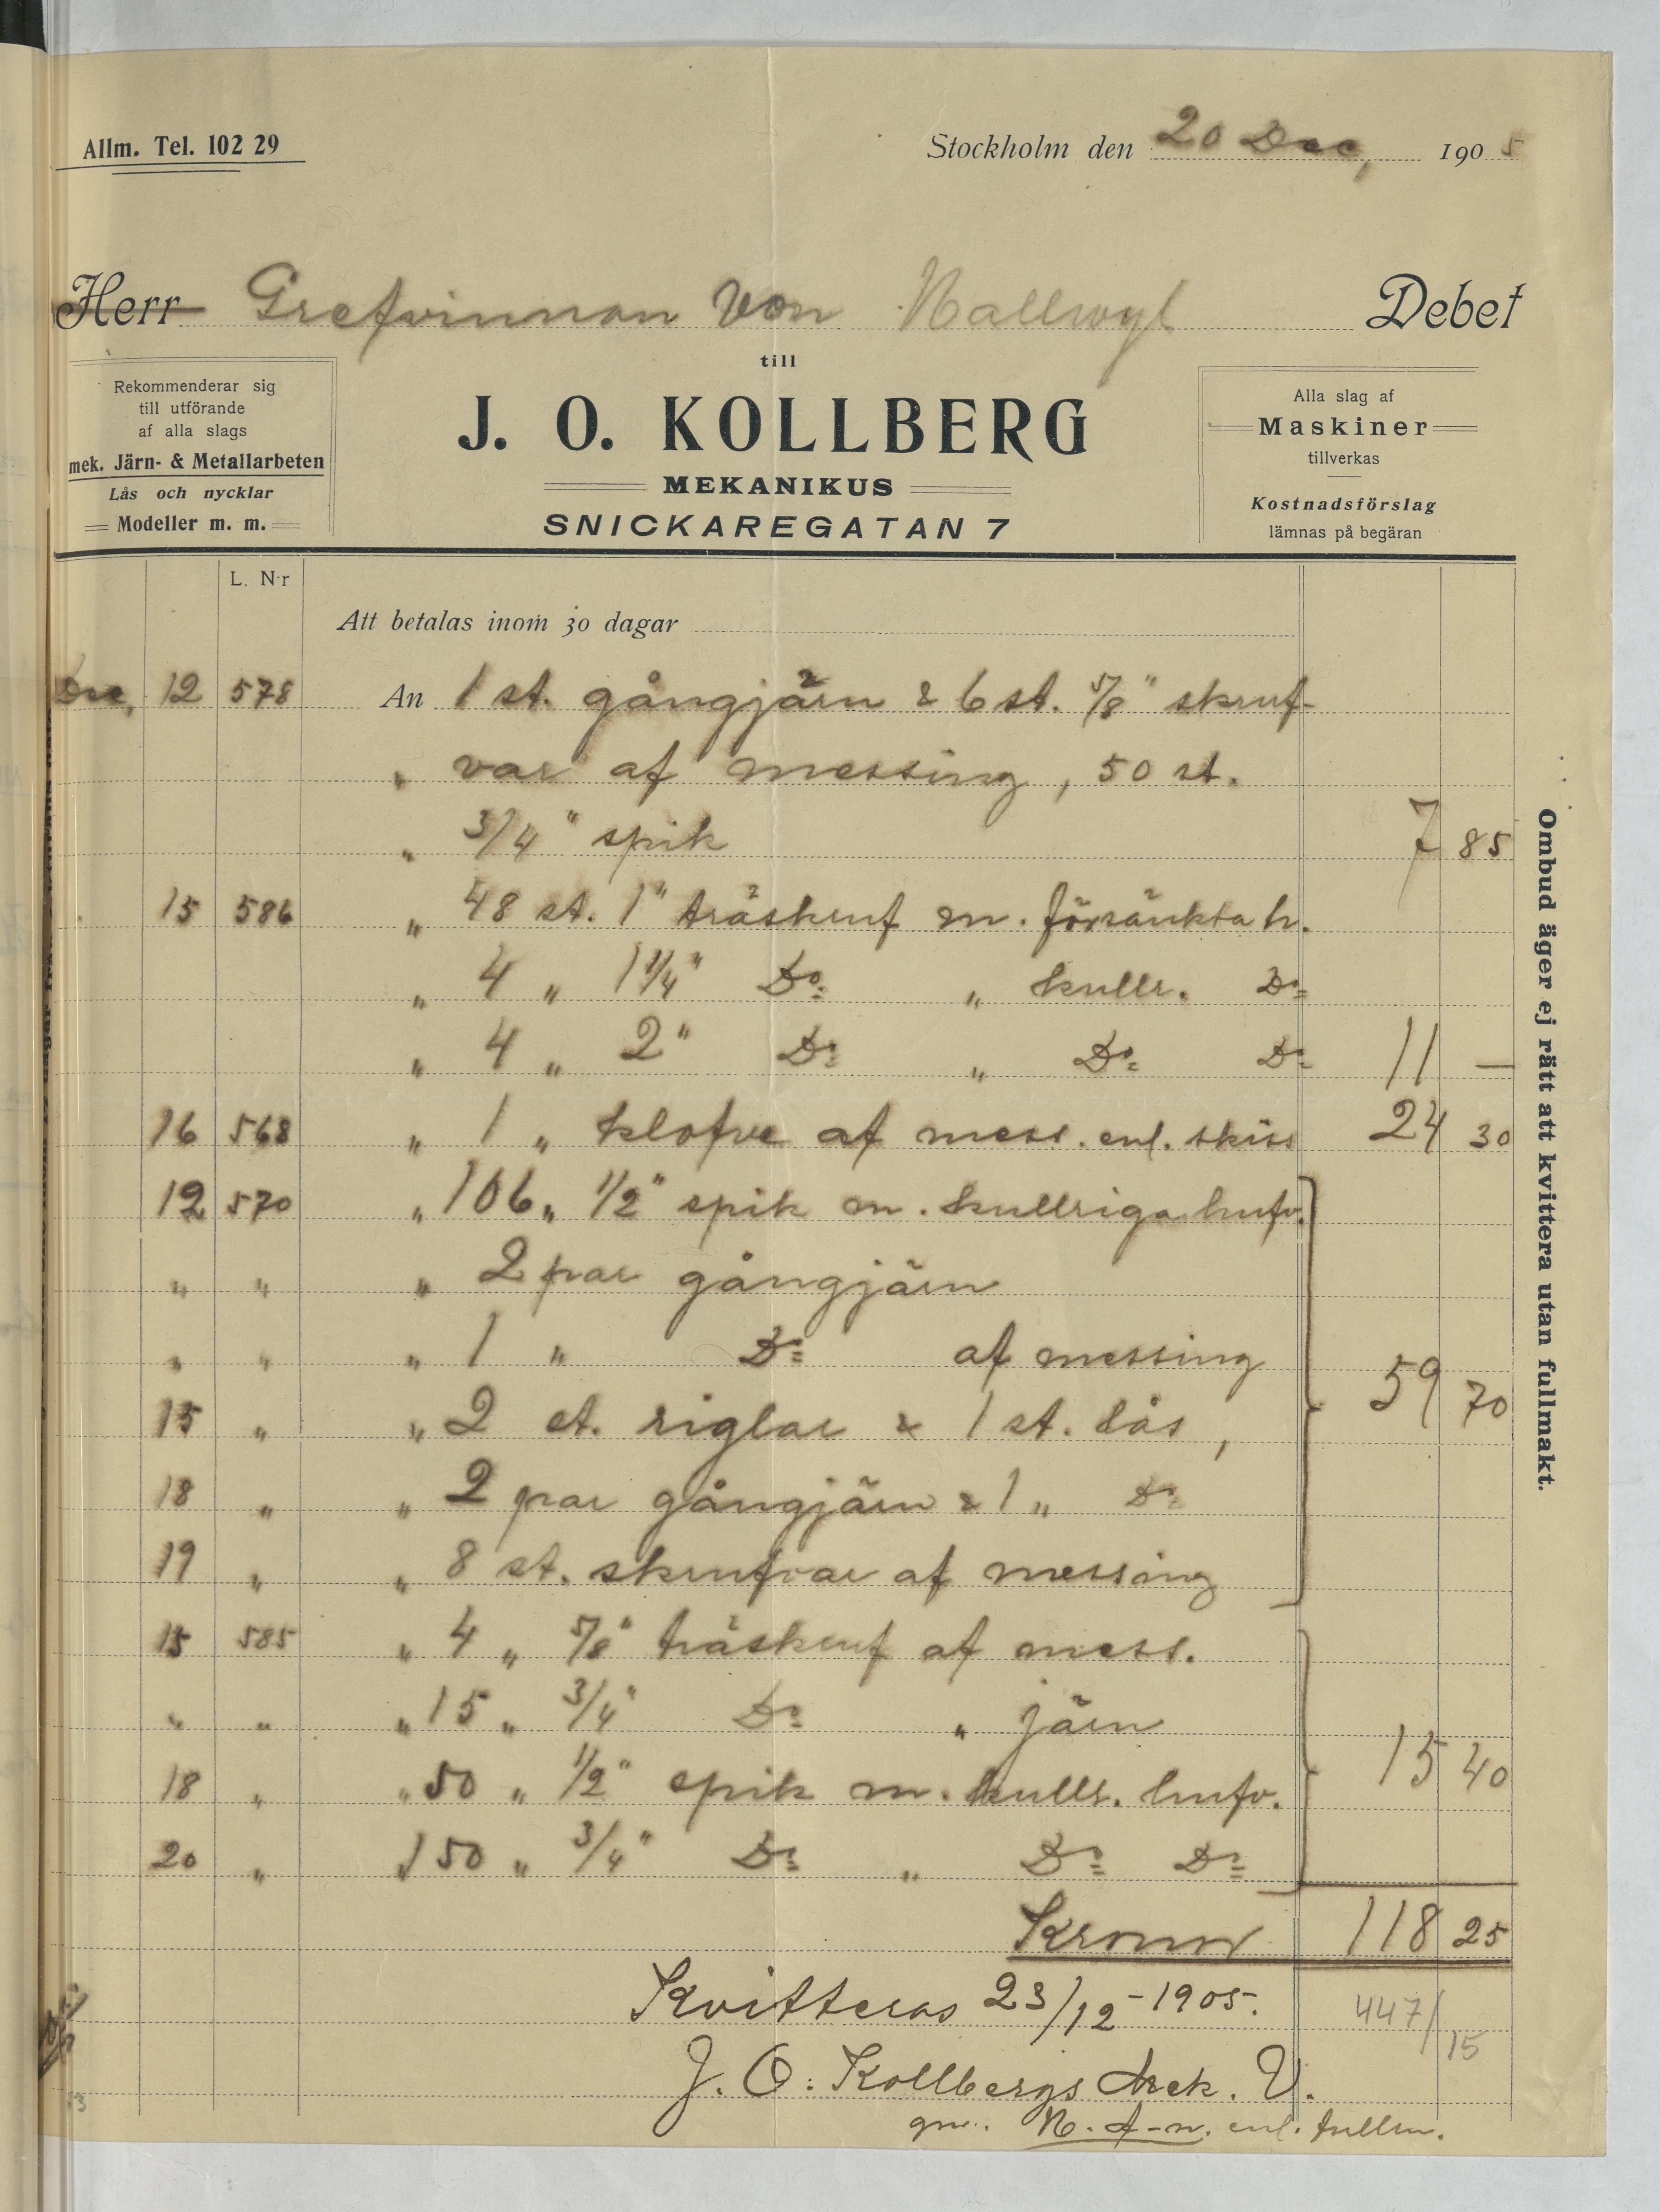 Allm. Tel. 102 29
Stockholm den 20 Dec, 1905
Herr Grefvinnan Von Hallwyl Debet
till
J. O. KOLLBERG
MEKANIKUS
SNICKAREGATAN 7
Rekommenderar sig
till utförande
af alla slags
mek. Järn- & Metallarbeten
Lås och nycklar
Modeller m. m.
Alla slag af
Maskiner
tillverkas
Kostnadsförslag
lämnas på begäran
L. Nr
Att betalas inom 30 dagar
Dec, 12 578 An 1 st. gångjärn & 6 st. 5/8" skruf-
" var af messing, 50 st.
" 3/4" spik 7 85
15 586 " 48 st. 1" träskruf m. försänkta h.
" 4 " 1 1/4" Do " kullr. Do
" 4 " 2" Do " Do Do 11 —
16 568 " 1 " klofve af mess. enl. skiss 24 30
12 570 " 106 " 1/2" spik m. kullriga hufv.
" " " 2 par gångjärn
" " " 1 " Do af messing 59 70
15 " " 2 st. riglar & 1 st. lås,
18 " " 2 par gångjärn & 1 " Do
19 " " 8 st. skrufvar af messing
15 585 " 4 " 5/8" träskruf af mess.
" " " 15 " 3/4" Do " järn
18 " " 50 " 1/2" spik m. kullr. hufv. 15 40
20 " 150 " 3/4" Do " Do Do
Kronor 118 25
Kvitteras 23/12-1905. 447/15
J. O: Kollbergs Mek. V.
gm. N. A-n. enl. fullm.
Ombud äger ej rätt att kvittera utan fullmakt.